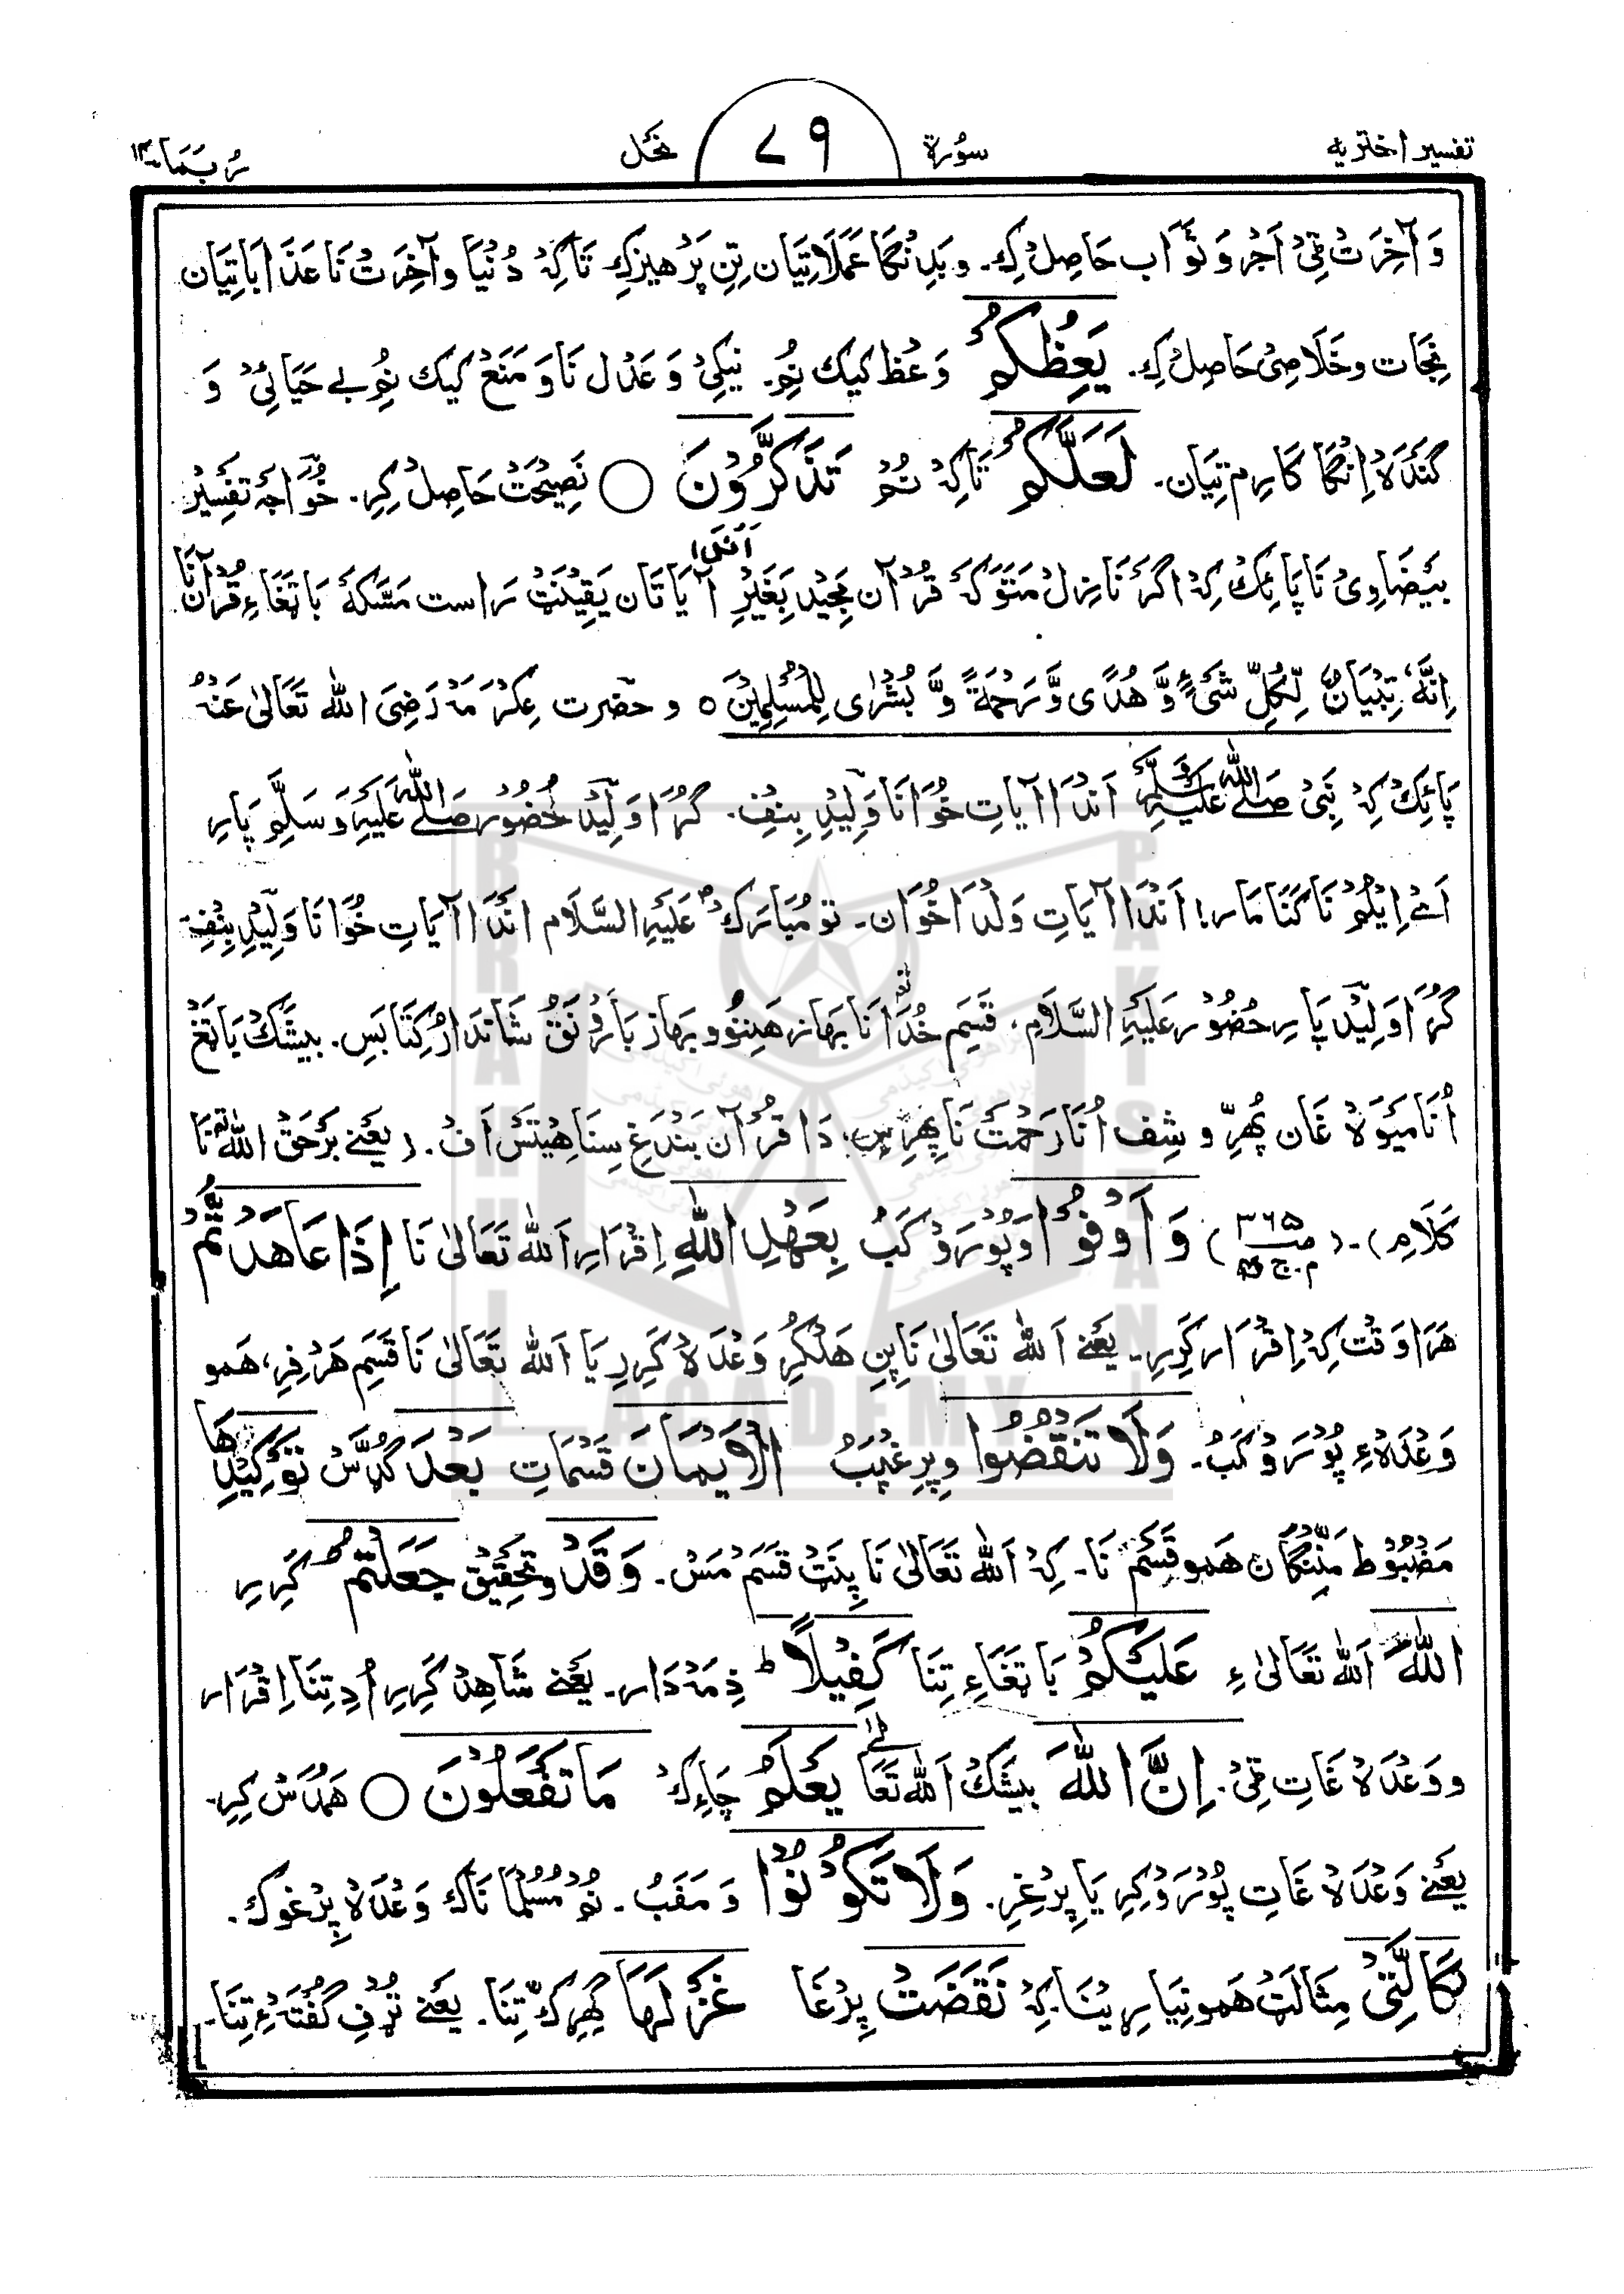 تفسیر اختریه
سُورة ٧٩ نحل
رُبَمَا ١٤
وَ آخِرَتْ ٹِیْ اَجْر وَ ثَوَاب حَاصِل کِ۔ و بَدِنْگا عَمَلَاتِیَان تِنِ پَرْهیزکِ تَاکِهْ دُنْیَا و آخِرَتْ نَا عَذَابَاتِیَان
نِجَات و خَلَاصِیْ حَاصِلْ کِ۔ یَعِظُکُمْ وَعْظ کیک نُمِ۔ نیکِیْ وَ عَدْل نَا وَ مَنَعْ کیک نُمِ بے حَیَائِیْ وَ
گندَه اِنْگا کَارِم تِیَان۔ لَعَلَّکُمْ تَاکِهْ نُمْ تَذَکَّرُوْنَ ○ نَصِیْحَتْ حَاصِلْ کِرِ۔ خُوَاجَه تفسِیْرِ
بَیْضَاوِیْ نَا پَائِکْ کِهْ اگر نَازِلْ مَتَوَکَهْ قُرْآن مَجِیْد بَغَیْرِ اَنْدَا آیَاتَان یَقِیْنَتْ رَاست مَسَّکَهْ بَاتَغَاءِ قُرْآنَا نَا
اِنَّهٗ تِبْیَانٌ لِّکُلِّ شَیْءٍ وَّ هُدًی وَّ رَحْمَةً وَّ بُشْرٰی لِلْمُسْلِمِیْنَ ○ و حضرت عِکْرَمَهْ رَضِیَ اللّٰه تَعَالیٰ عَنْهُ
پَائِکْ کِهْ نَبِیْ صَلَّی اللّٰه عَلَیْهِ وَسَلَّمْ اَنْدَا آیَاتِ خُوَانَا وَلِیْدِ بِنْفِ۔ گُرَا وَلِیْد حُضُوْر صَلَّی اللّٰه عَلَیْهِ وَسَلَّمْ پَارِ
اَئے اِیْلُمْ نَا کَنَا مَار! اَنْدَا آیَاتِ وَلْدَا خُوَان۔ تو مُبَارَکْ عَلَیْهِ السَّلَام اَنْدَا آیَاتِ خُوَانَا وَلِیْدِ بِنْفِ۔
گُرَا وَلِیْد پَارِ حُضُوْر عَلَیْهِ السَّلَامِ، قَسَم خُدَا نَا بهَاز هَنِنُو و بهَاز بَارَوْنَقْ شَانْدَارُ کِتَابَسِ۔ بیشَکْ بَاتَغْ
اُنَا مَیْوَهْ غَان پُهِرِّ و شِف اُنَا رَحْمَتْ نَا پِهرِ، دَا قُرْآن بَنْدَغ سِنَا هِیْتَسْ اَفْ۔ (یعْنے بَرْحَقْ اللّٰه نَا
کَلَامِ)۔ (صـ ٣٦٥ م۔ج) وَ اَوْفُوْا وَ پُوْرَوْ کَبُ بِعَهْدِ اللّٰهِ اِقْرَارِ اَللّٰه تَعَالیٰ نَا اِذَا عَاهَدْتُّمْ
هَرَا وَقْت کِهْ اِقْرَار کَرِیرِ۔ یعْنے اَللّٰه تَعَالیٰ نَا پِنِ هَلْکُرِ وَعْدَهْ کَرِرِ یَا اَللّٰه تَعَالیٰ نَا قَسَم هَرْفِرِ، هَمو
وَعْدَهءِ پُوْرَوْ کَبُ۔ وَ لَا تَنْقُضُوا و پِرغِپَبُ الْاَیْمَانَ قَسْمَاتِ بَعْدَ گُڈَّسْ تَوْکِیْدِهَا
مَضْبُوْط مَنِّنْگان هَمو قَسَم نَا۔ کِهْ اَللّٰه تَعَالیٰ نَا پِنَتْ قَسَم مَسْ۔ وَ قَدْ و تحقِیْق جَعَلْتُمْ کَرِیر
اللّٰهَ اَللّٰه تَعَالیٰ ءِ عَلَیْکُمْ بَاتَغَاءِ تِنَا کَفِیْلًا ط ذِمَهْ دَار۔ یعْنے شَاهِدْ کَرِیرِ اُدِ تِنَا اِقْرَار
و وَعْدَهْ غَاتِ ٹِیْ۔ اِنَّ اللّٰهَ بیشَکْ اَللّٰه تَعَالیٰ یَعْلَمُ چَاءِکْ مَا تَفْعَلُوْنَ ○ هَمْدَسْ کِرِ۔
یعْنے وَعْدَهْ غَاتِ پُوْرَوْ کِرِ یَا پِرْغِرِ۔ وَ لَا تَکُوْنُوْا وَ مَفَبُ۔ نُمْ مُسُلمانَاکْ وَعْدَهْ پِرْغوک۔
کَالَّتِیْ مِثَالَتْ هَمو نِیَارِیْنَا۔ کِهْ نَقَضَتْ پِرْغَا غَزْلَهَا پُهِرِکِّ تِنَا۔ یعْنے نُرْفِ گفْتَهءِ تِنَا۔
BRAHUI ACADEMY PAKISTAN